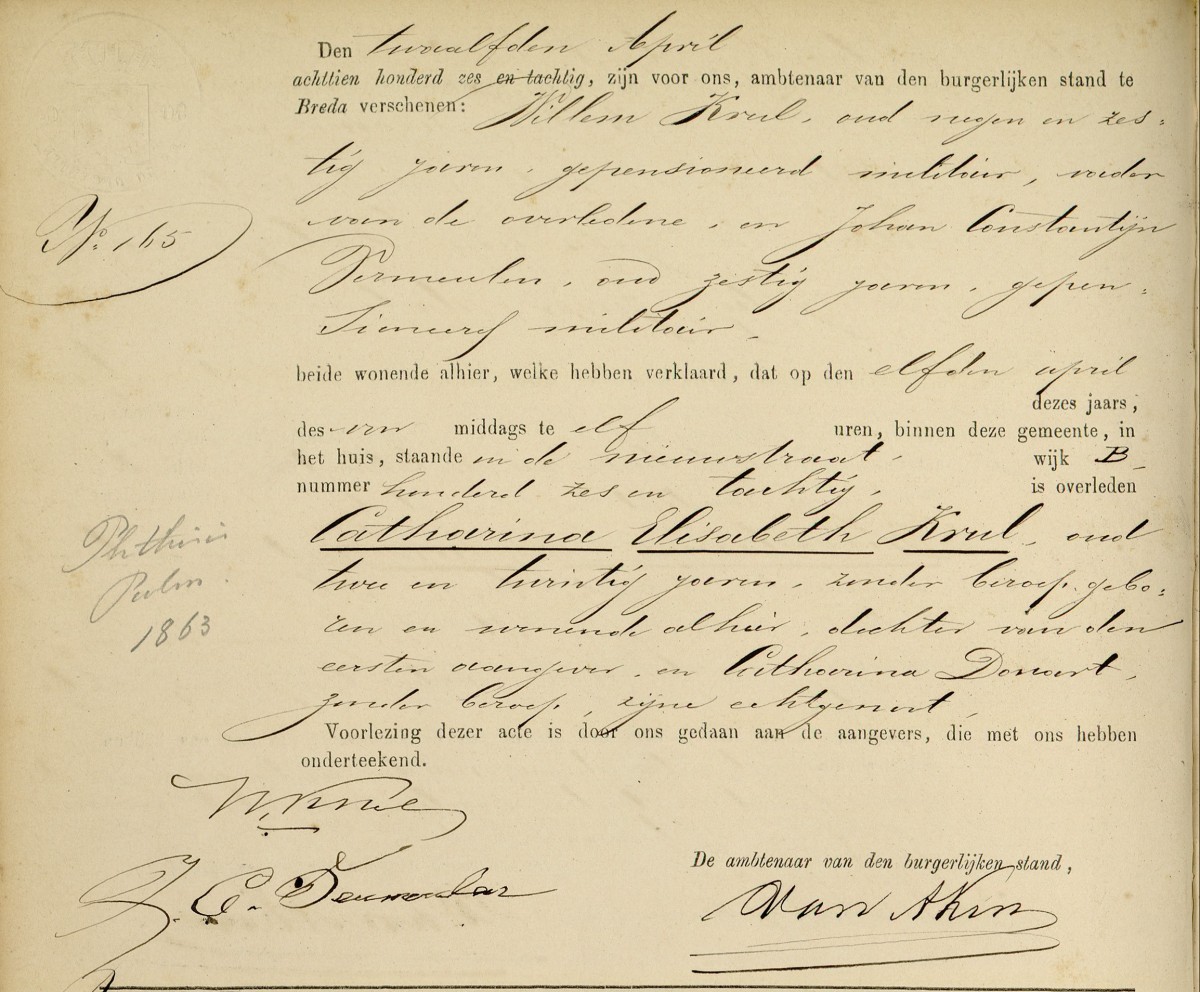 Den twaalfden April
achttien honderd zes en tachtig, zijn voor ons, ambtenaar van den burgerlijken stand te
Breda verschenen: Willem Krul, oud negen en zes=
tig jaren, gepensioneerd militair, vader
van de overledene, en Johan Constantijn
Vermeulen, oud zestig jaren, gepen=
sioneerd militair,
beide wonende alhier, welke hebben verklaard, dat op den elfden april
dezes jaars,
des voor middags te elf uren, binnen deze gemeente, in
het huis, staande in de nieuwstraat, wijk B,
nummer honderd zes en tachtig, is overleden
Catharina Elisabeth Krul, oud
twee en twintig jaren, zonder beroep, gebo=
ren en wonende alhier, dochter van den
eersten aangever, en Catharina Donart,
zonder beroep, zijne echtgenoot,
Voorlezing dezer acte is door ons gedaan aan de aangevers, die met ons hebben
onderteekend.
No. 165
Phthisis
Pulm.
1863
W. Krul
J. C. Vermeulen
De ambtenaar van den burgerlijken stand,